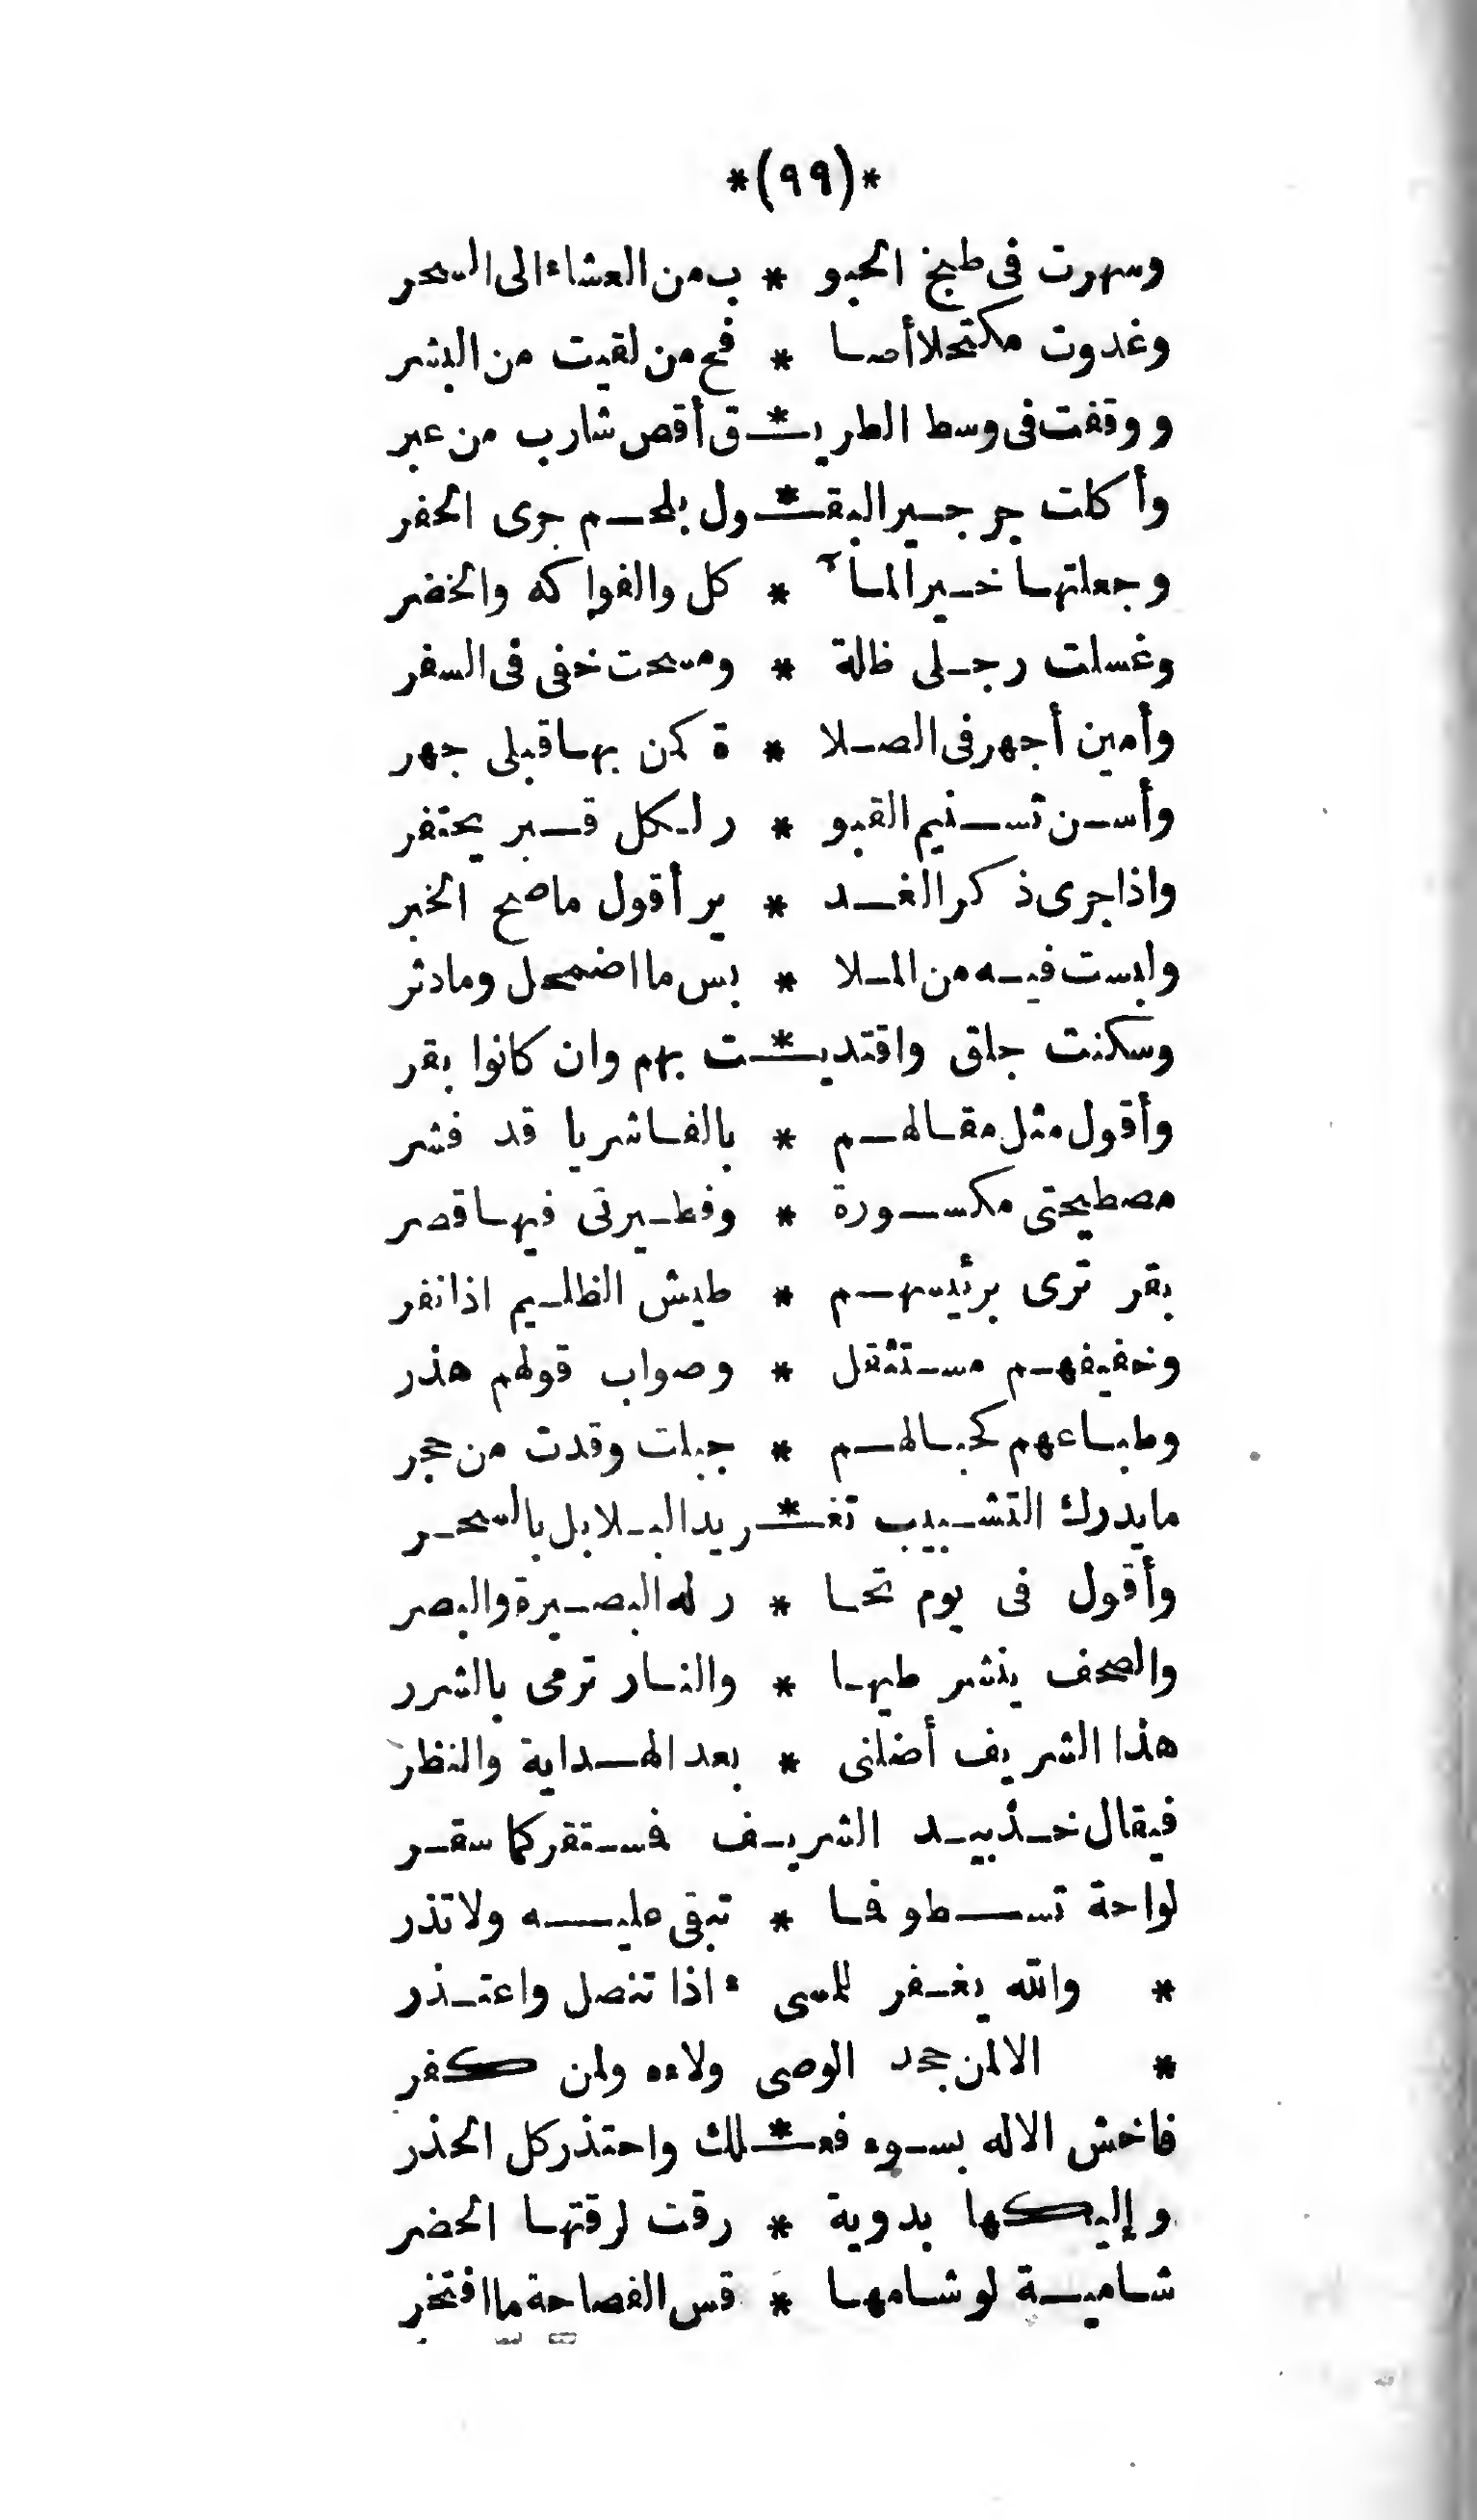 *(٩٩)*
وسهرت فى طبخ الحبو * ب من العشاء الى السحر
وغدوت مكتحلا أصا * فح من لقيت من البشر
ووقفت فى وسط الطريـ * ـق أقص شارب من عبر
وأكلت جرجير البقـ * ـول بلحم جرى الحفر
وجعلتها خير المآ * كل والفواكه والخضر
وغسلت رجلى ظلة * ومسحت خفى فى السفر
وأمين أجهر فى الصلا * ة كمن بها قبلى جهر
وأسن تسنيم القبو * ر لكل قبر يحتفر
واذا جرى ذكر الغد * ير أقول ماصح الخبر
ولبست فيه من الملا * بس ما اضمحل ومادثر
وسكنت جلق واقتديـ * ـت بهم وان كانوا بقر
وأقول مثل مقالهم * بالفاشريا قد فشر
مصطيحتى مكسورة * وفطيرتى فيها قصر
بقر ترى برئيسهم * طيش الظليم اذا نفر
وخفيفهم مستثقل * وصواب قولهم هذر
وطباعهم كجبالهم * جبلت وقدت من حجر
مايدرك التشبيب تغـ * ـريد البلابل بالسحر
وأقول فى يوم تحا * ر له البصيرة والبصر
والصحف ينشر طيها * والنار ترمى بالشرر
هذا الشريف أضلنى * بعد الهداية والنظر
فيقال خذ بيد الشريف فستقركما سقر
لواحة تسطو فما * تبقى عليه ولا تذر
* والله يغفر للمسىء اذا تنصل واعتذر
* الا لمن جحد الوصى ولاءه ولمن كفر
فاخش الاله بسوء فعـ * ـلك واحتذر كل الحذر
وإليكها بدوية * رقت لرقتها الحضر
شامية لو شامها * قس الفصاحة ما افتخر